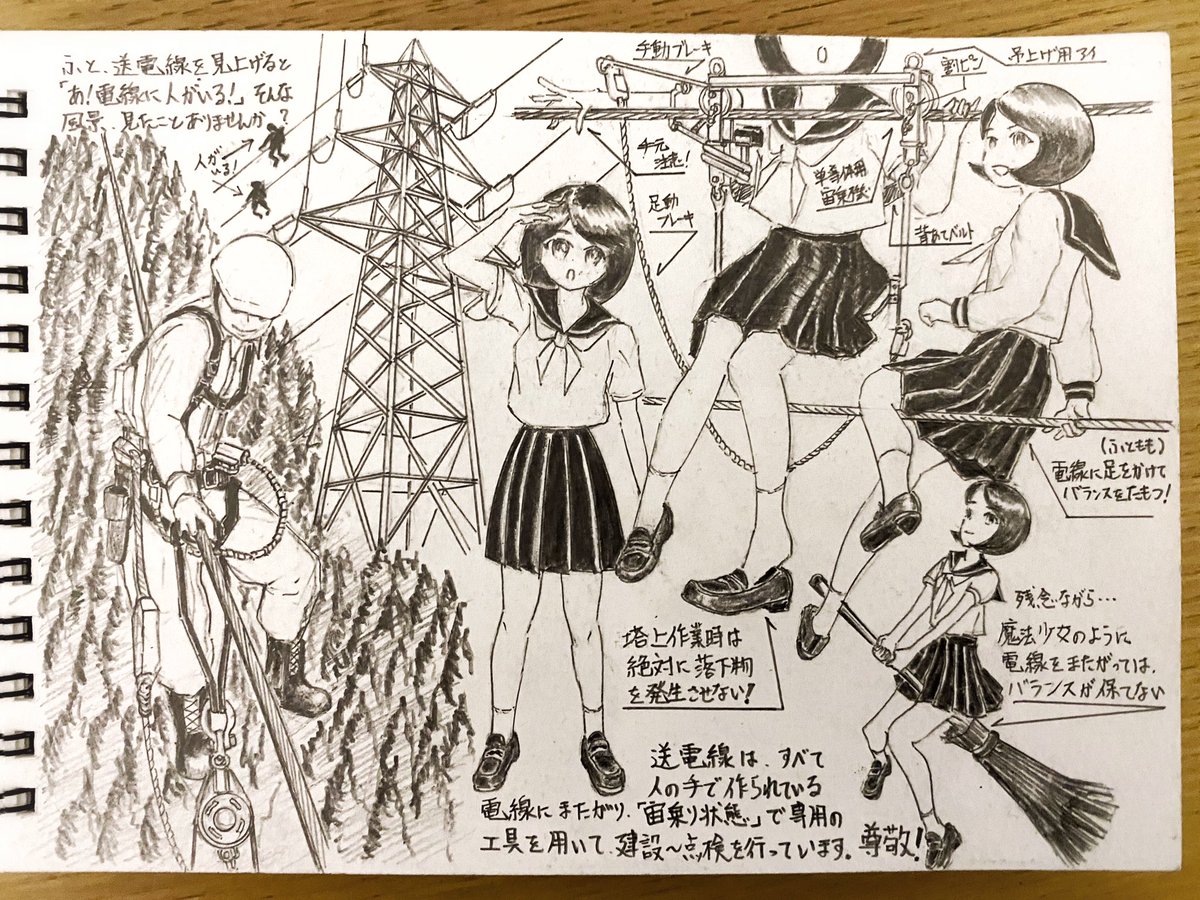 ふと、送電線を見上げると
「あ!電線に人がいる!」そんな
風景、見たことありませんか?
人が
いる!
手動ブレーキ
割ピン
吊上げ用アイ
手元
注意!
足動
ブレーキ
単導体用
宙乗機
背あてベルト
(ふともも)
電線に足をかけて
バランスをたもつ!
残念ながら…
魔法少女のように
電線をまたがっては、
バランスが保てない
塔上作業時は
絶対に落下物
を発生させない!
送電線は、すべて
人の手で作られている
電線にまたがり、「宙乗り状態」で専用の
工具を用いて、建設〜点検を行っています。尊敬!